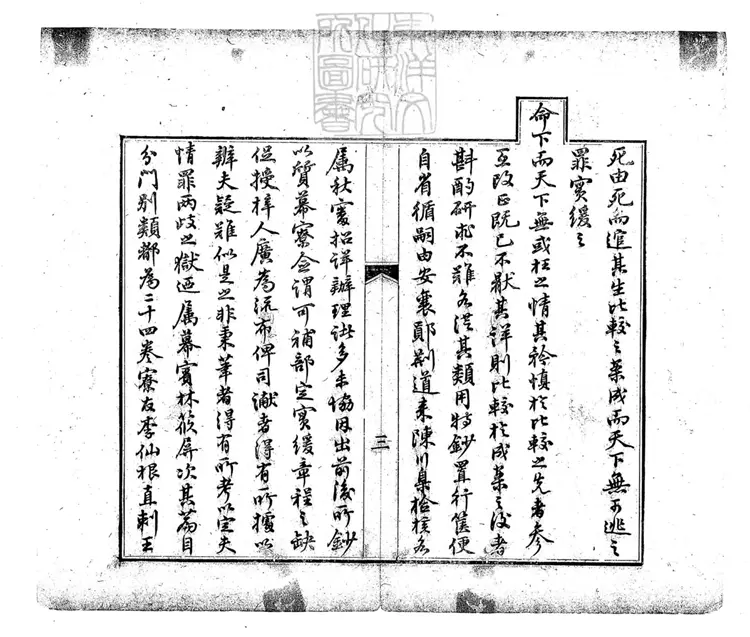 死由死而追其生比較之案成而天下無可逃之
罪實緩之
命下而天下無或枉之情其矜慎於比較之先者參
互攷正既已不厭其詳則比較於成案之後者
斟酌研求不難各從其類用特鈔置行篋便
自省循嗣由安襄鄖荊道來陳川臬檢核各
三
屬秋審招詳辦理諸多未協因出前後所鈔
以質幕寮僉謂可補部定實緩章程之缺
促授梓人廣為流布俾司讞者得有所據以
辦夫疑難似是之非秉筆者得有所考以定夫
情罪兩歧之獄迺屬幕賓林筱屏次其篇目
分門別類都為二十四卷寮友李仙根直刺王